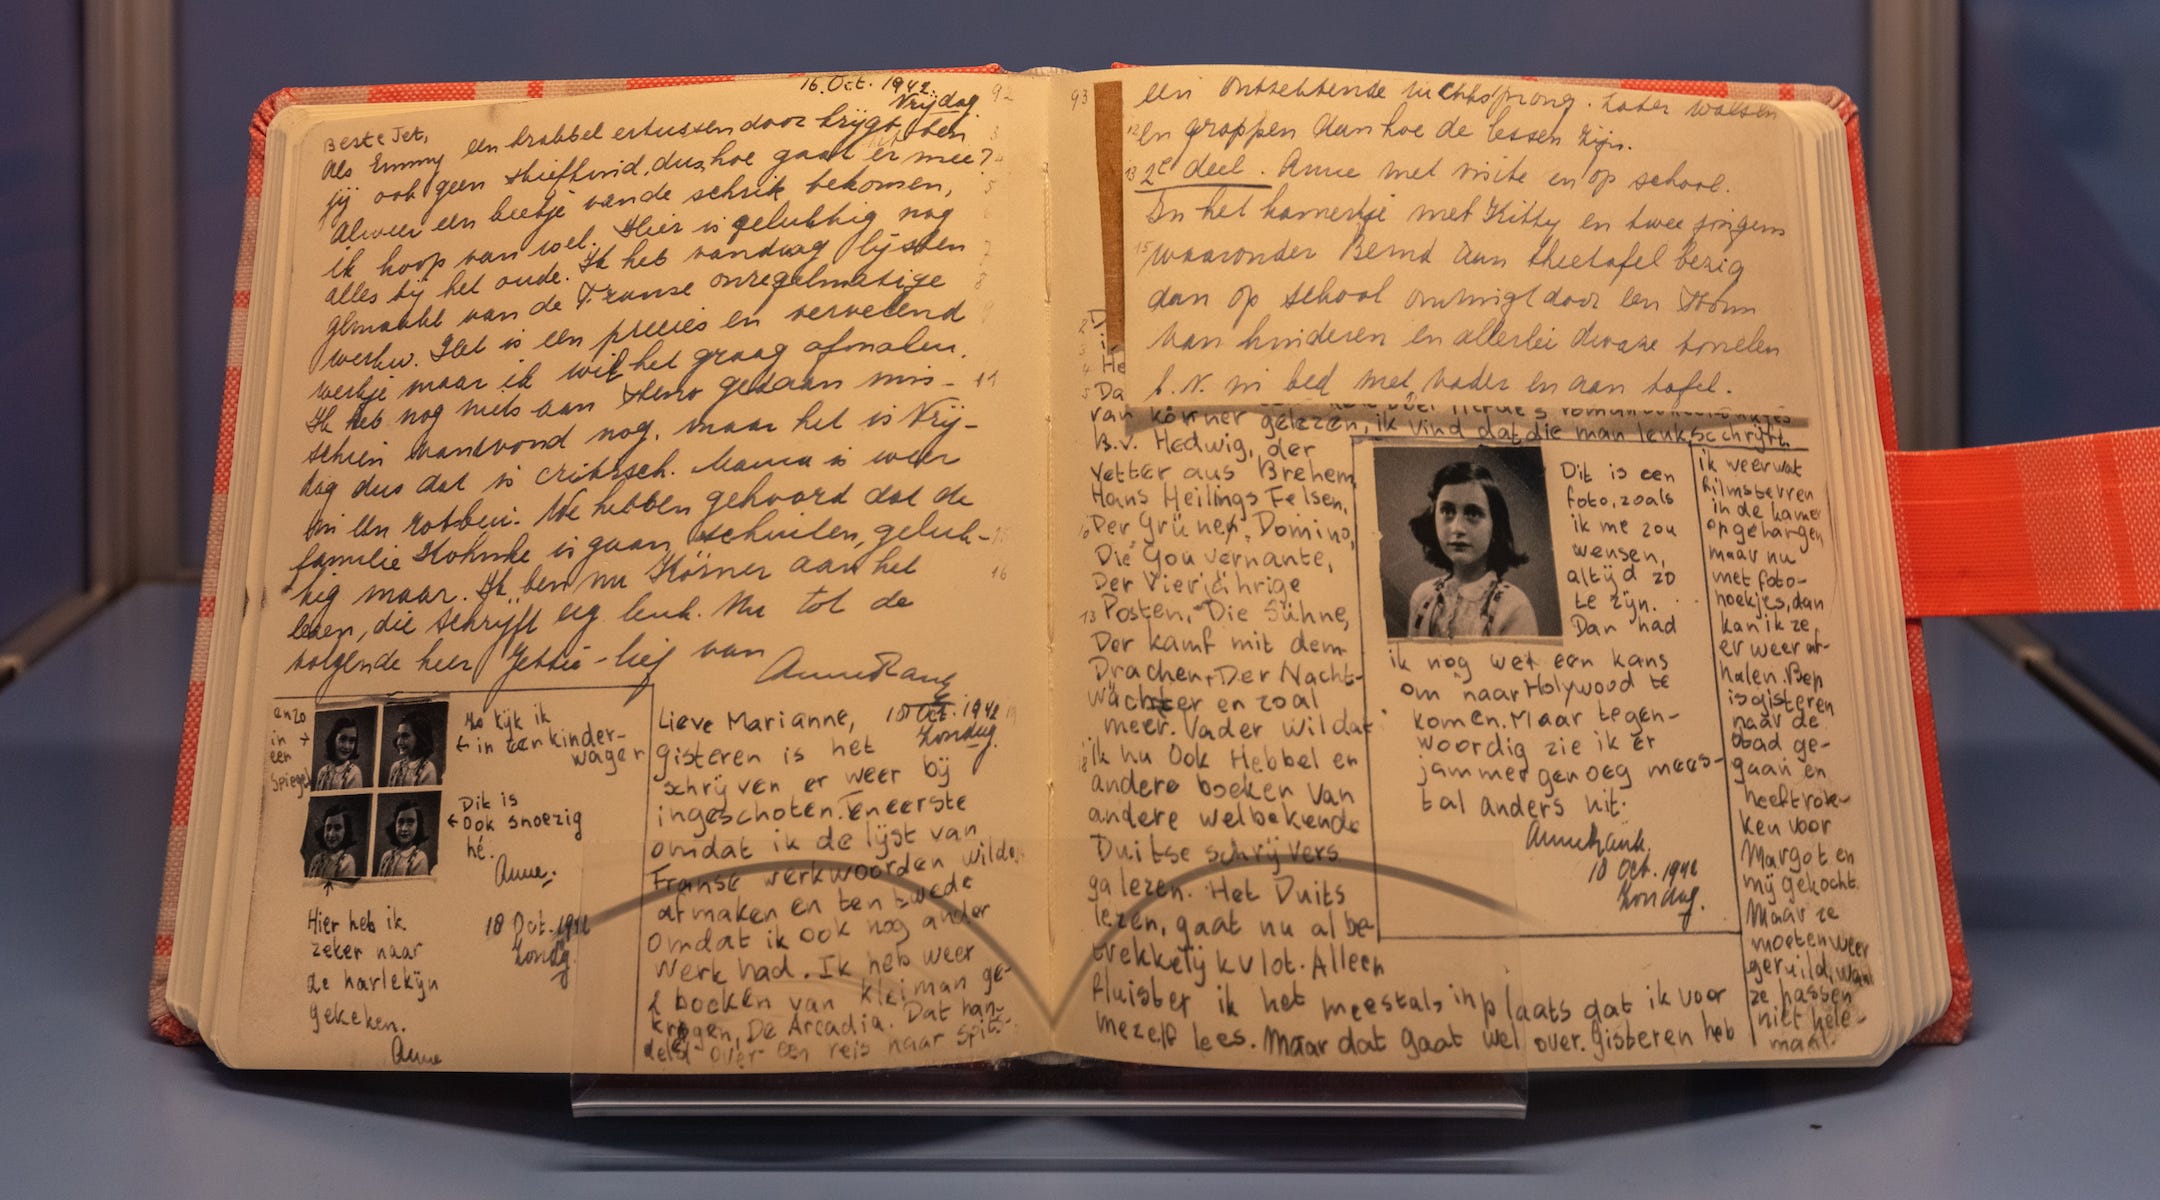 16. Oct. 1942.
Vrijdag
92
Beste Jet,
Als Emmy een krabbel ertussen door krijgt, ben
jij ook geen stiefkind, dus hoe gaat er mee?
Alweer een beetje van de schrik bekomen,
ik hoop van wel. Hier is gelukkig nog
alles bij het oude. Ik heb vandaag lijsten
gemaakt van de Franse onregelmatige
werkw. Het is een precies en vervelend
werkje maar ik wil het graag afmaken.
Ik heb nog niets aan steno gedaan mis-
schien vanavond nog, maar het is Vrij-
dag dus dat is critisch. Mama is weer
in een rotbui. We hebben gehoord dat de
familie is gaan schuilen, geluk-
kig maar. Ik ben nu Körner aan het
lezen, die schrijft erg leuk. Nu tot de
volgende keer Jettie-lief van
Anne Frank
enzo
in →
een
spiegel
Ho kijk ik
← in een kinder-
wager
Dit is
← ook snoezig
hé.
Anne.
Hier heb ik
zeker naar
de harlekijn
gekeken.
Anne
18 Oct. 1942
Zondag.
18 Oct. 1942
Zondag.
Lieve Marianne,
gisteren is het
schrijven er weer bij
ingeschoten. Eneerste
omdat ik de lijst van
Franse werkwoorden wilde
afmaken en ten twede
omdat ik ook nog ander
werk had. Ik heb weer
2 boeken van kleiman ge-
kregen, De Arcadia. Dat han-
delst over een reis naar Spits-
93
een ontzettende luchtsprong. Later walsen
en grappen dan hoe de lessen zijn.
2e deel. Anne met visite en op school.
In het kamertje met Kitty en twee jongens
waaronder Bernd aan theetafel bezig
dan op school omringt door een storm
van kinderen en allerlei dwaze tonelen
b.v. in bed met vader en aan tafel.
He
Da
van körner gelezen, ik vind dat die man leuk schrijft.
B.v. Hedwig, der
Vetter aus Brehem,
Hans Heilings Felsen,
Der Grüner Domino,
Die Gouvernante,
Der Vierjährige
Posten, Die Sühne,
Der kamf mit dem
Drachen, Der Nacht-
wächter en zoal
meer. Vader wil dat
ik nu Ook Hebbel en
andere boeken van
andere welbekende
Duitse schrijvers
ga lezen. Het Duits
lezen, gaat nu al be-
trekkelijk vlot. Alleen
fluister ik het meestal, inplaats dat ik voor
mezelf lees. Maar dat gaat wel over. Gisteren heb
Dit is een
foto, zoals
ik me zou
wensen,
altijd zo
te zijn.
Dan had
ik nog wel een kans
om naar Holywood te
komen. Maar tegen-
woordig zie ik er
jammer genoeg mees-
tal anders uit.
Annefrank.
18 Oct. 1942
Zondag.
ik weer wat
filmsterren
in de kamer
opgehangen
maar nu
met foto-
hoekjes, dan
kan ik ze,
er weer af-
halen. Bep
is gisteren
naar de
stad ge-
gaan en
heeft rok-
ken voor
Margot en
mij gekocht.
Maar ze
moeten weer
geruild, want
ze passen
niet hele-
maal.